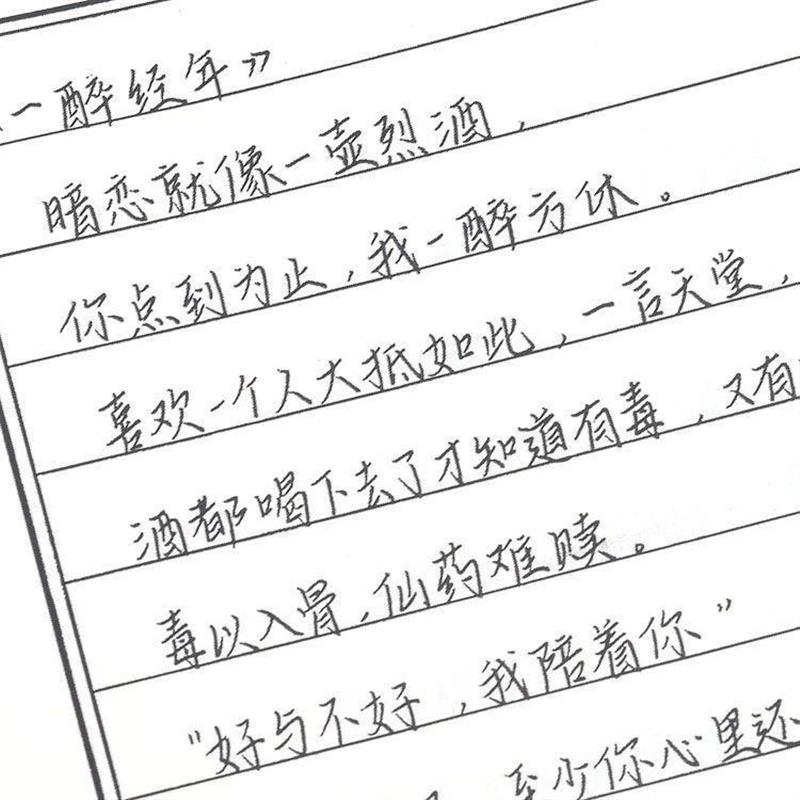 一醉经年》
暗恋就像一壶烈酒，
你点到为止，我一醉方休。
喜欢一个人大抵如此，一言天堂，
酒都喝下去了才知道有毒，又有
毒以入骨，仙药难赎。
"好与不好，我陪着你"
至少你心里还